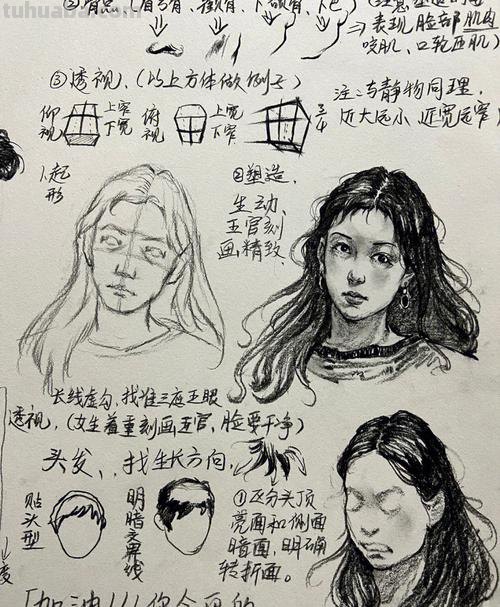 tuhuaba.com
②骨点、眉弓骨、颧骨、下颌骨、下巴)
表现脸部肌肉
咬肌、口轮匝肌)
③透视、(以上方体做例子)
仰视
上窄下宽
俯视
上宽下窄
3/4
注:与静物同理,
近大远小 近宽远窄)
1.起形
②塑造、
生动、
五官刻
画精致.
长线虚勾,找准三庭五眼
透视、(女生着重刻画五官,脸要干净)
头发、找生长方向、
贴头型
明暗交界线
①区分头顶
亮面和侧面
暗面,明确
转折面。